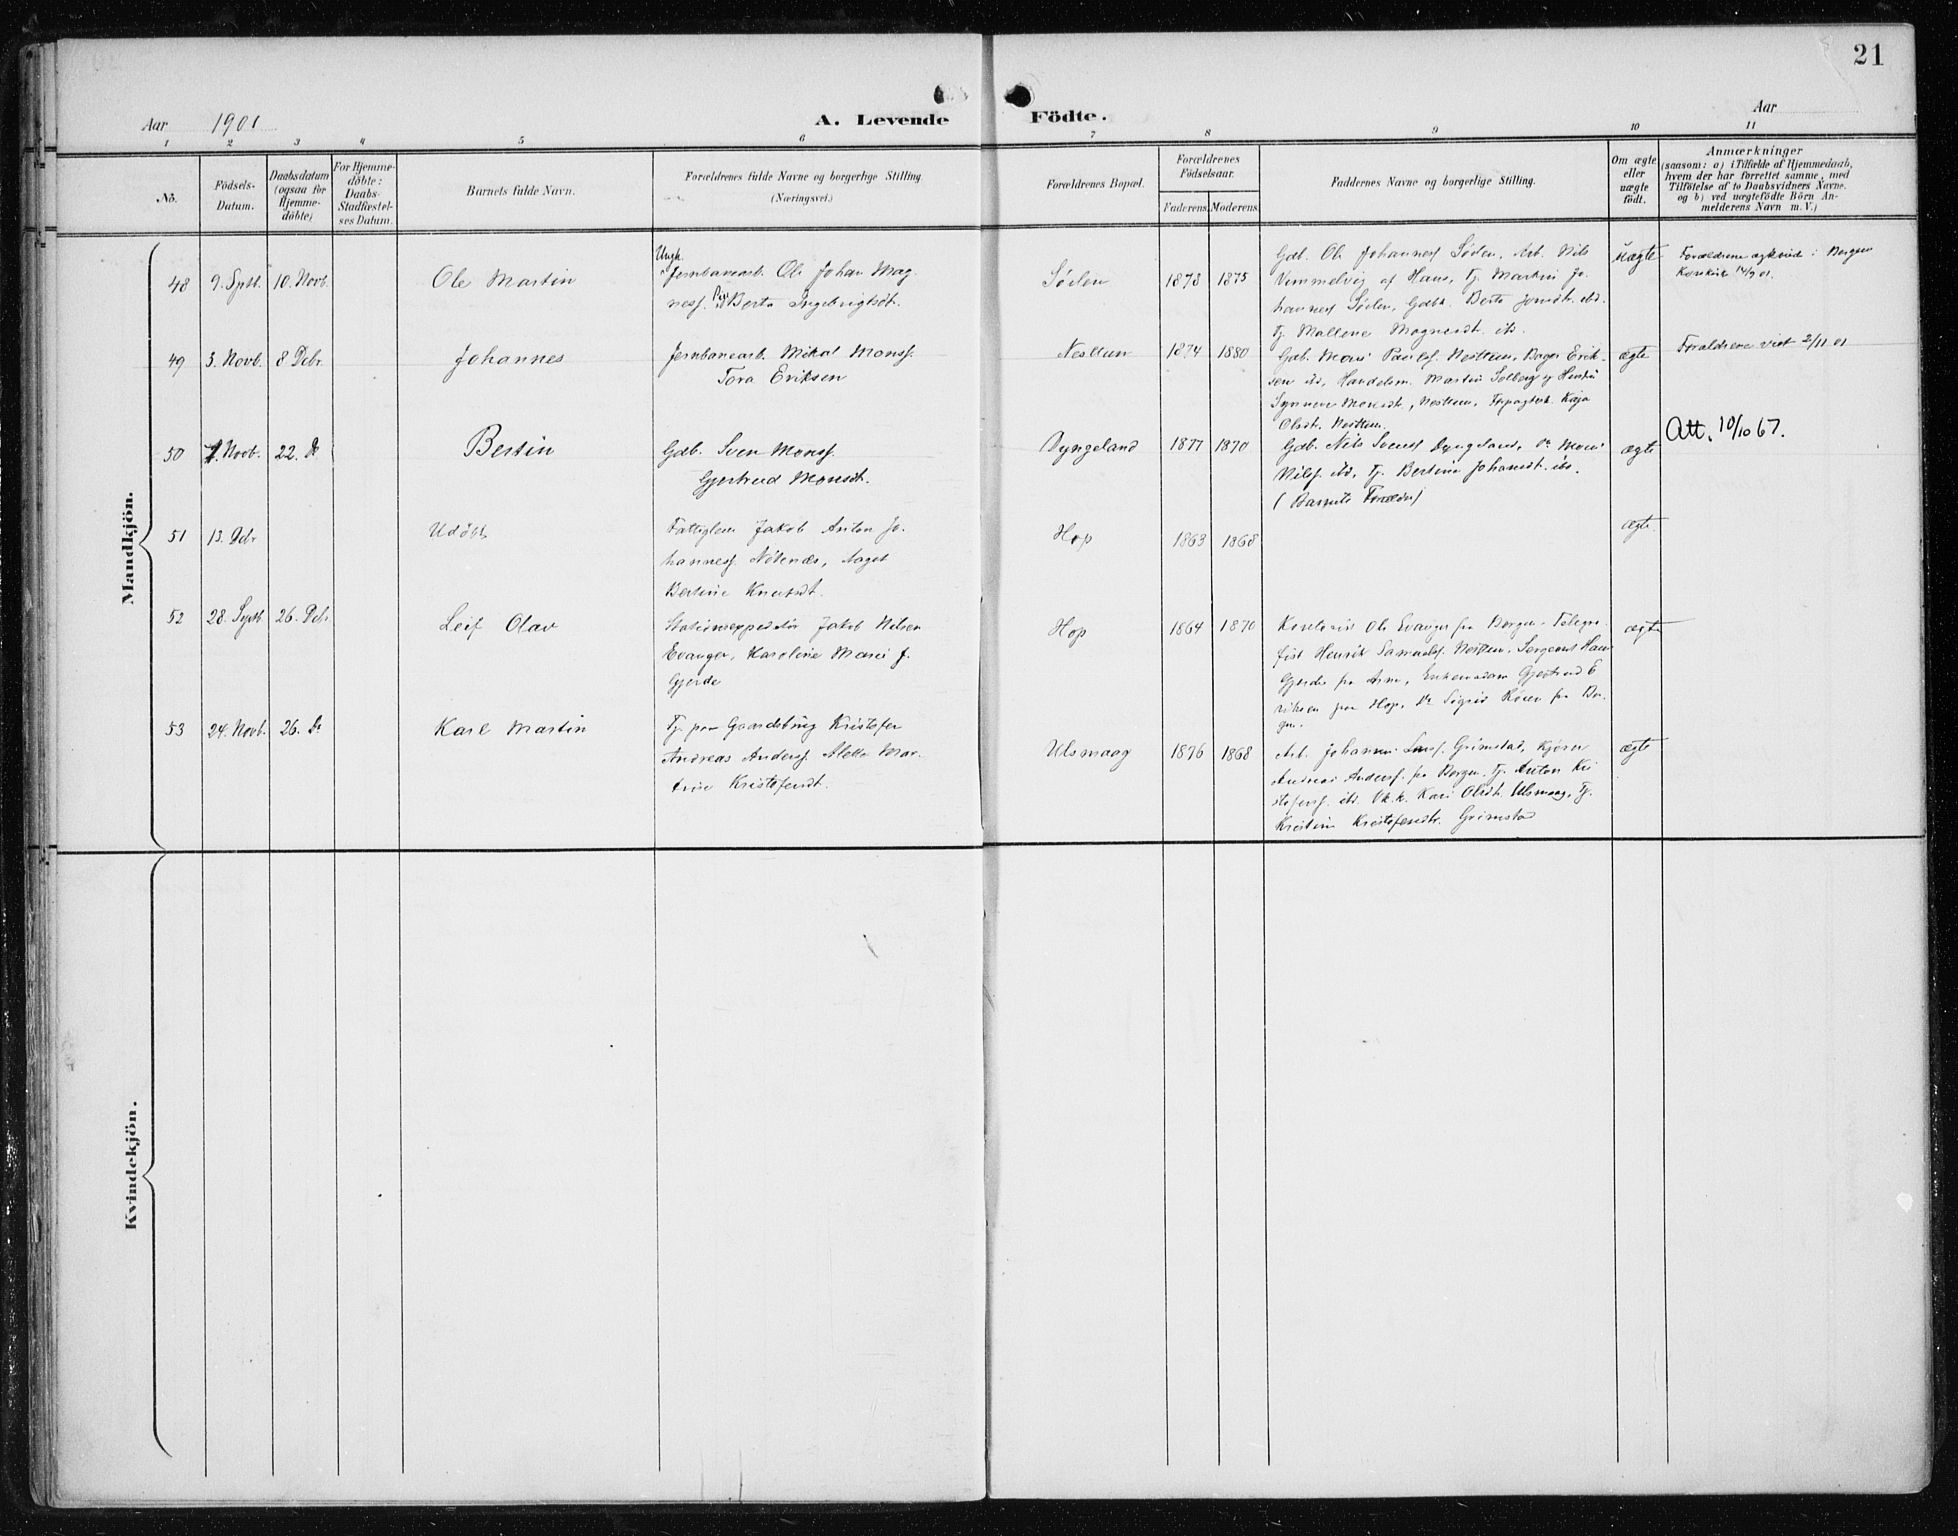 21
Aar 1901
A. Levende Födte.
Aar
1 2 3 4 5 6 7 8 9 10 11
No.
Födsels-
Datum.
Daabsdatum
(ogsaa for
Hjemme-
döbte)
For Hjemme-
döbte:
Daabs-
Stadfæstel-
ses Datum.
Barnets fulde Navn.
Forældrenes fulde Navne og borgerlige Stilling.
(Næringsvei.)
Forældrenes Bopæl.
Forældrenes
Födselsaar.
Faderens. Moderens.
Faddernes Navne og borgerlige Stilling.
Om ægte
eller
uægte
födt.
Anmærkninger
(saasom: a) i Tilfælde af Hjemmedaab,
hvem der har forrettet samme, med
Tilföielse af to Daabsvidners Navne.
og b) ved uægtefödte Börn An-
melderens Navn m. V.)
Mandkjön.
48 9. Sptb. 10. Novb.
Ole Martin
Ungk.
Jernbanearb. Ole Johan Mag
nesf. Pig. Berta Ingebrigtsdt.
Sörlen
1878 1875
Gdb. Ole Johannesf Sörlen, Arb. Nils
Vimmelvig af Haus, Tj. Martin Jo
hannesf Sörlen, Gdbk. Berta Jonsdt. ibd.
Tj. Mallene Magnesdt. ibd.
uægte
Forældrene ægteviet i Bergen
Korskirke 14/9 01.
49 3. Novb. 8 Debr.
Johannes
Jernbanearb. Mikal Monsf.
Tora Eriksen
Nesttun
1874 1880
Gdb. Mons Paulsf. Nesttun, Bager Erik-
sen ibd, Handelsm. Martin Solberg og Hustru
Synneve Monsdt., Nesttun, Kaja
Olsdt. Nesttun.
ægte
Forældrene viet 2/11 01
50 1. Novb. 22. Do
Bertin
Gdb. Sven Monsf.
Gjertrud Monsdt.
Dyngeland
1877 1870
Gdb. Nils Svensf Dyngeland, Do Mons
Nilsf. ibd, Tj. Bertine Johansdt. ibd.
(Barnets Forældre)
ægte
Att. 10/10 67.
51 13. Debr
Udöbt
Fattiglem Jakob Anton Jo-
hannesf. Nötenæs, Aaget
Bertine Knutsdt.
Hop
1863 1868
ægte
52 28. Septb 26. Debr
Leif Olav
Stationsexpeditör Jakob Nilsen
Evanger, Karoline Marie J.
Gjerde
Hop
1864 1870
Kontorist Ole Evanger fra Bergen, Telegra
fist Henrik Samuelsf. Nesttun, Sergeant Hans
Gjerde fra Arne, Enkemadam Gjertrud E
riksen fra Hop, Do Sigrid fra Ber
gen.
ægte
53 24. Novb. 26. Do
Karl Martin
Tj. paa Gaardsbrug Kristofer
Andreas Andersf. Alette Mar-
tine Kristofersdt.
Ulsmaag
1876 1868
Arb. Johannes Larsf. Grimstad, Kjörer
Andreas Andersf. fra Bergen, Tj. Anton Kri
stofersf. ibd. Vk.k. Kari Olsdt. Ulsmaag, Tj.
Kristine Kristofersdtr. Grimstad
ægte
Kvindekjön.